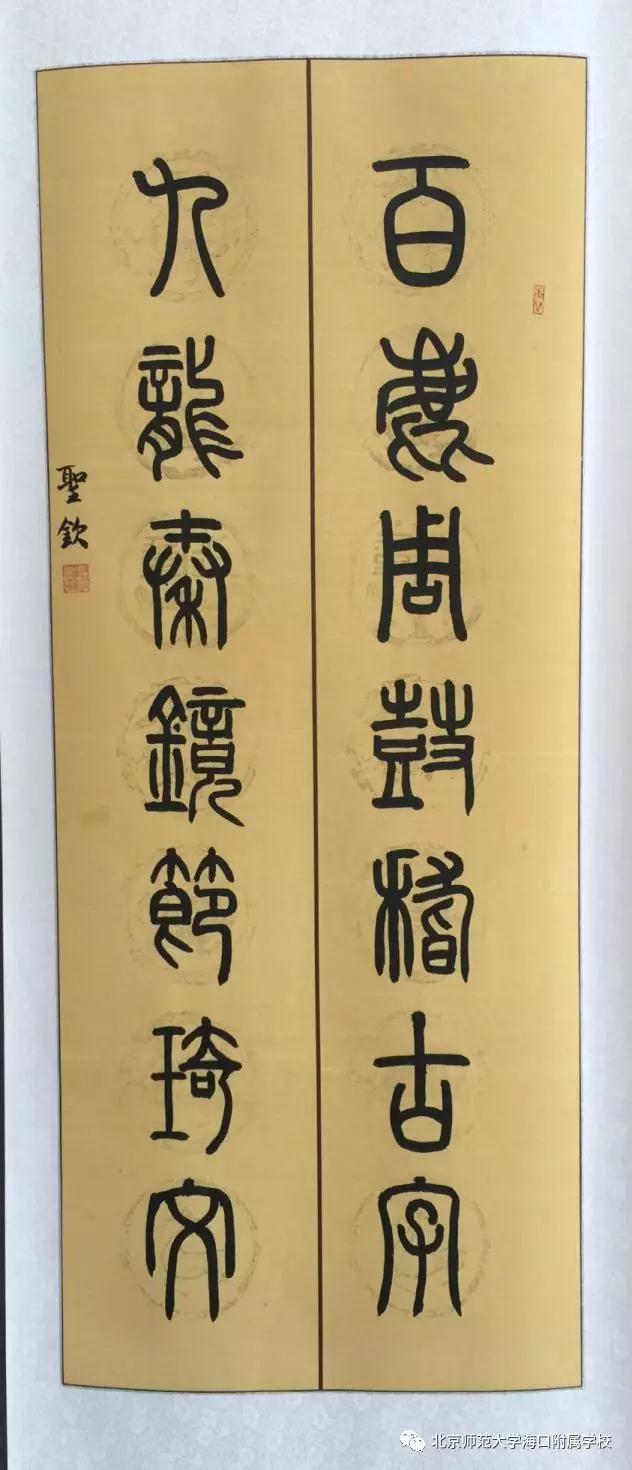 百鹿周鼓稽古字
九龍秦鏡節琦文
聖欽
北京师范大学海口附属学校